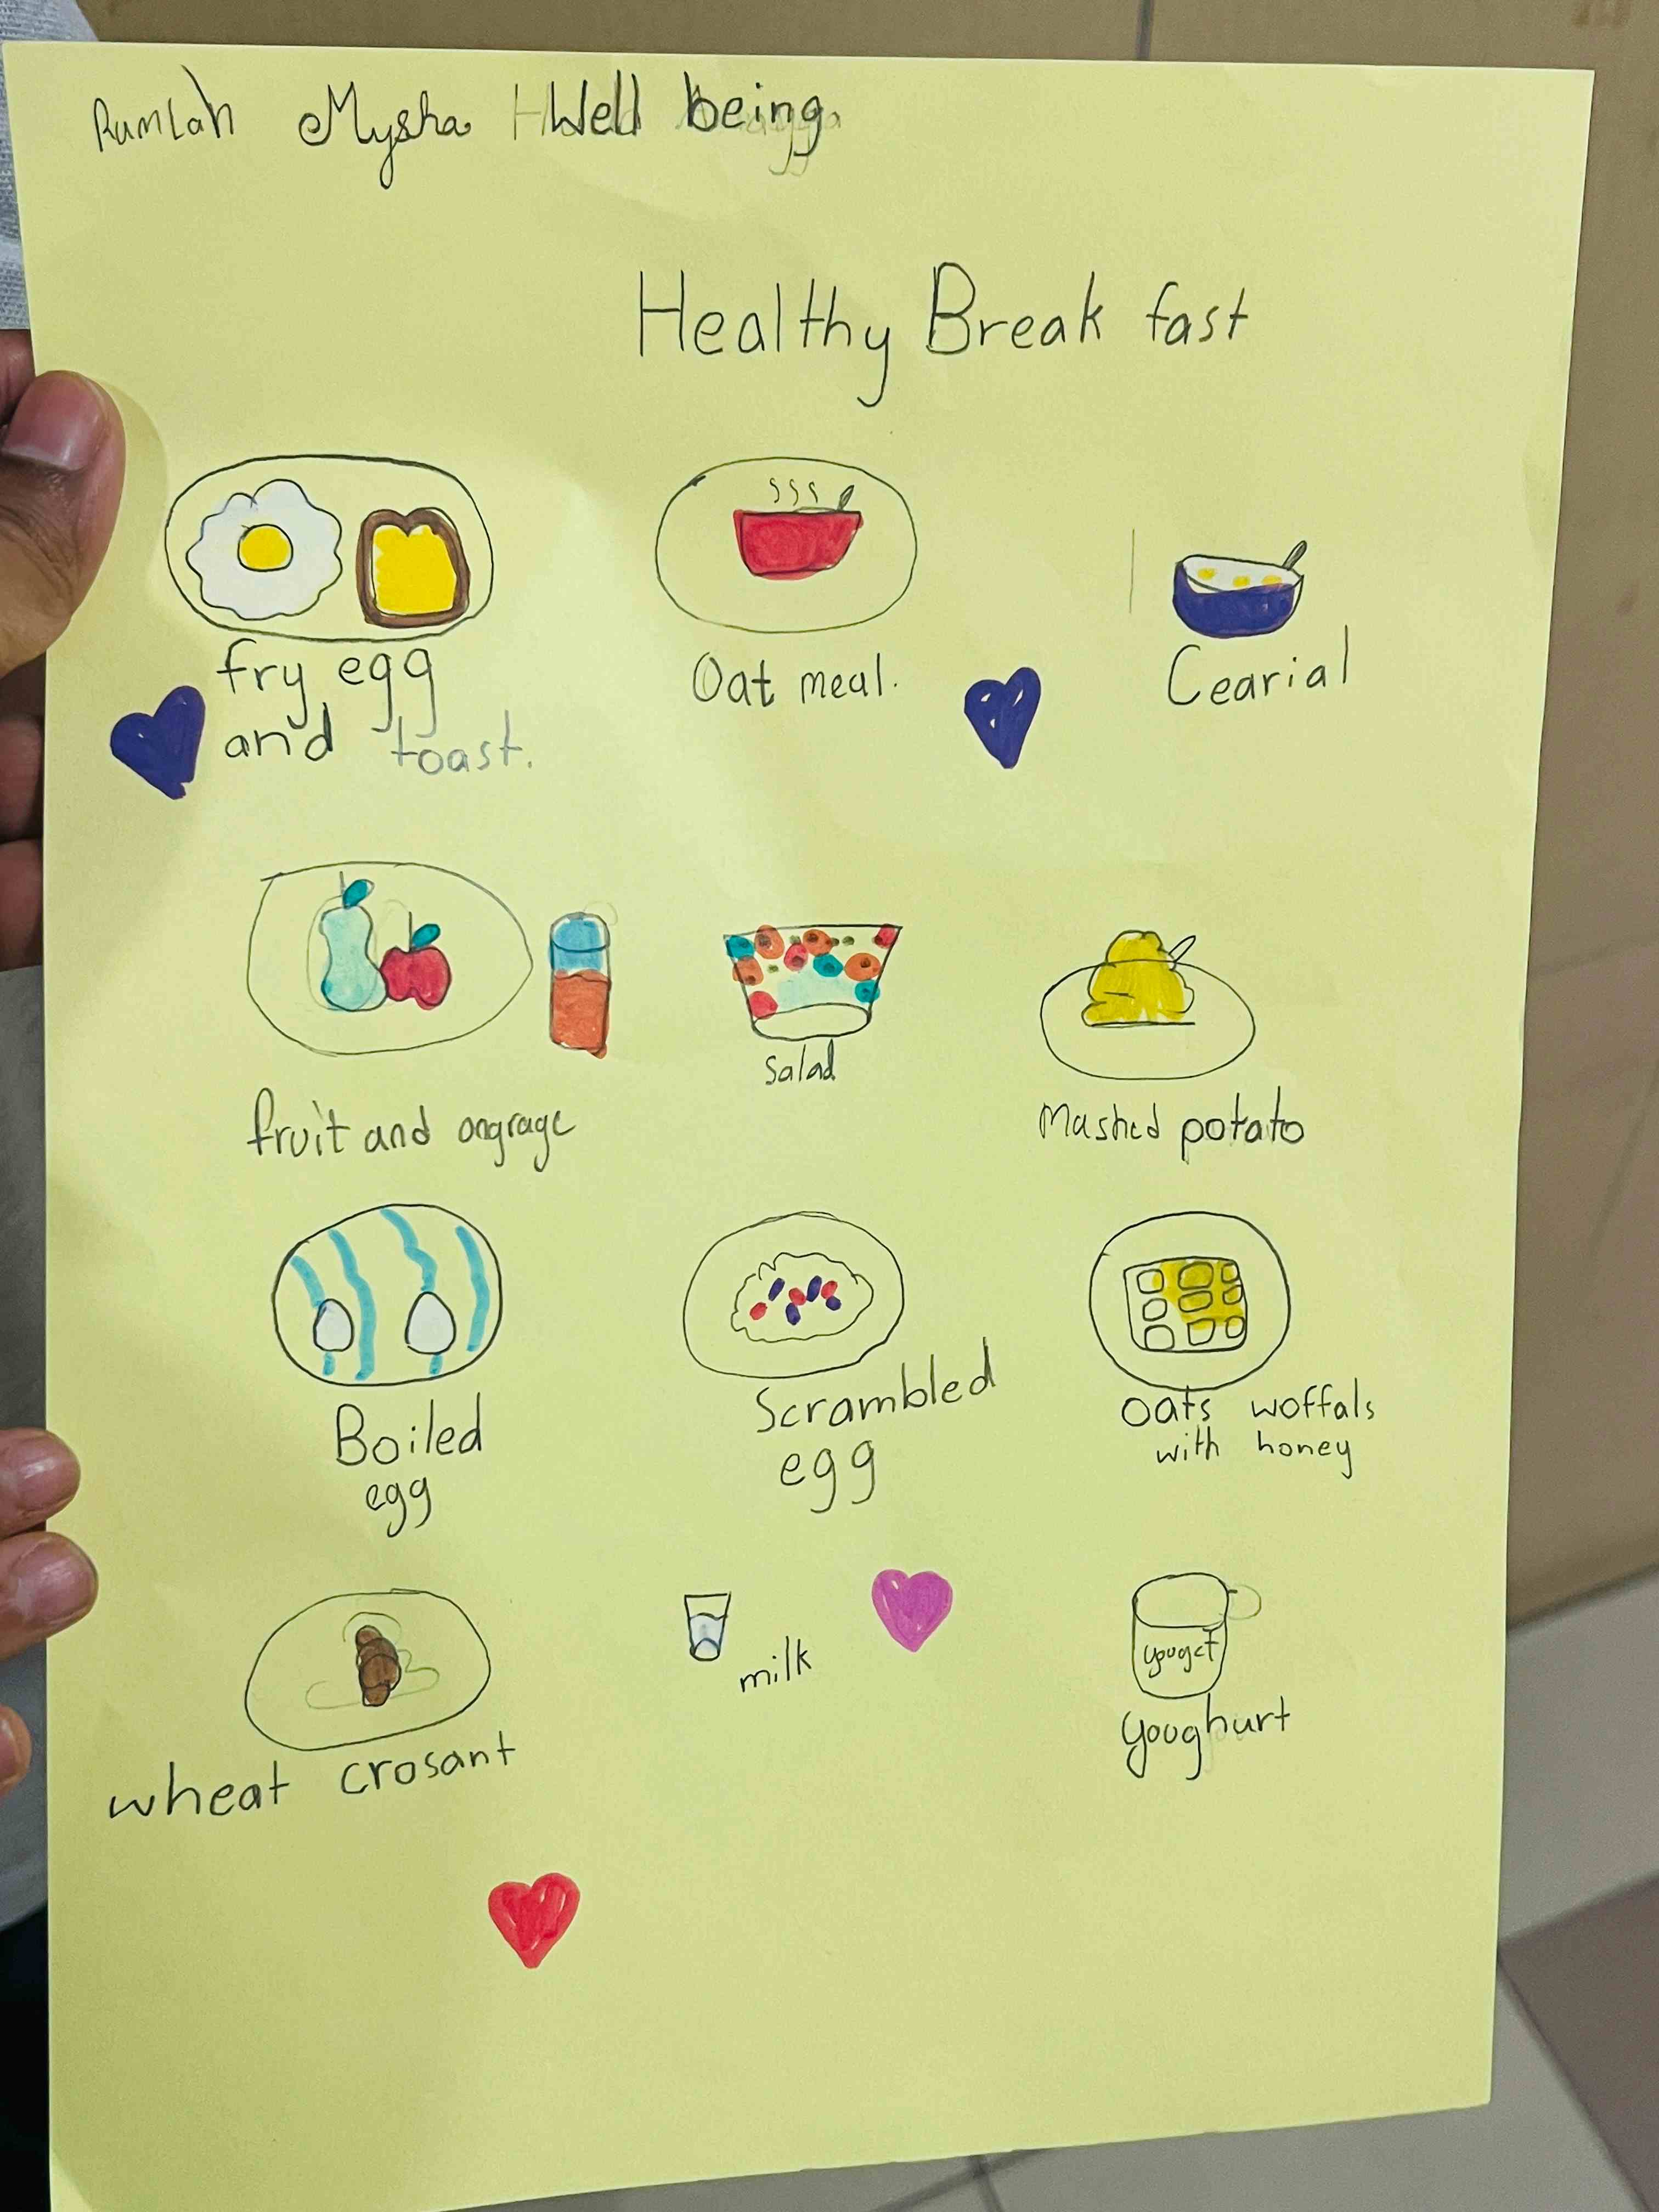 Rumlah Mysha Well being
Healthy Break fast
fry egg
and toast.
Oat meal.
Cearial
fruit and ongrage
Salad
Mashed potato
Boiled
egg
Scrambled
egg
oats woffals
with honey
wheat crosant
milk
youget
youghurt